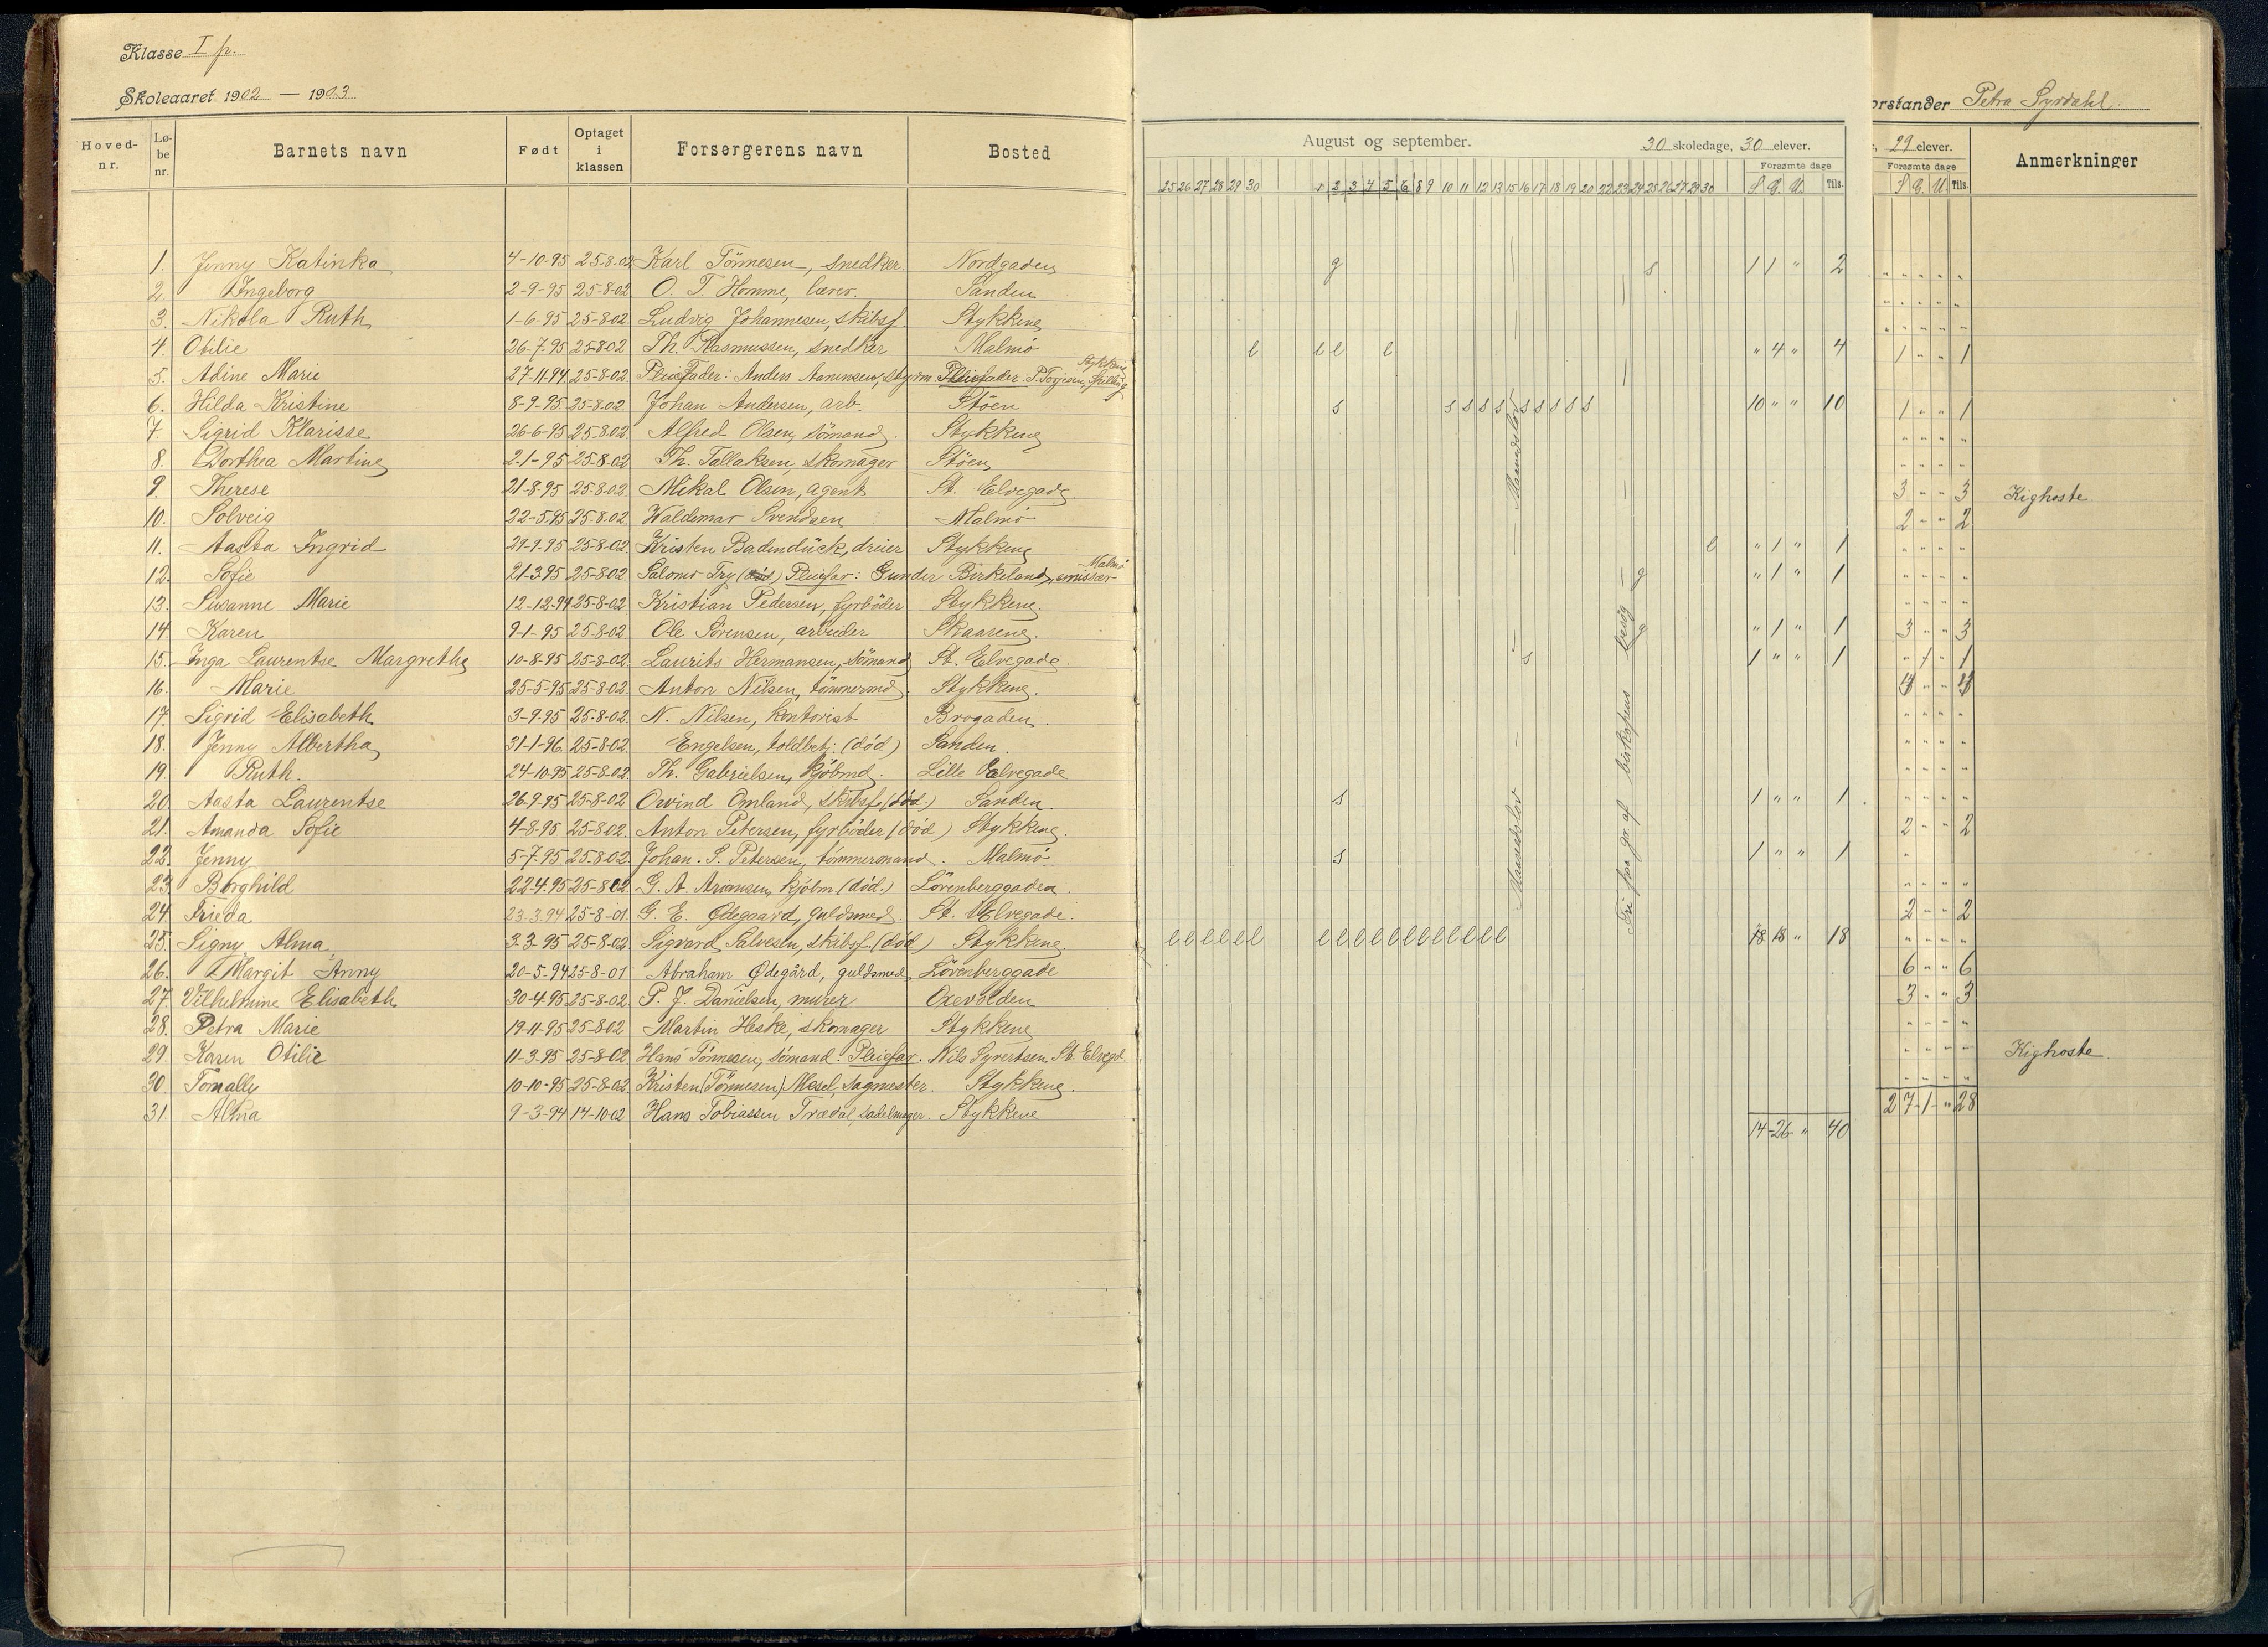 Klasse I p.
Skoleaaret 1902 — 1903
Hoved-nr. Lø-be nr. Barnets navn Født Optaget i klassen Forsørgerens navn Bosted
1. Jenny Katinka 4-10-95 25-8-02 Karl Tönnesen, snedker. Nordgaden
2. Ingeborg 2-9-95 25-8-02 O. T. Homme, lærer. Sanden
3. Nikola Ruth 1-6-95 25-8-02 Ludvig Johannesen, skibsf. Stykkene
4. Otilie 26-7-95 25-8-02 Th. Rasmussen, snedker Malmö
5. Adine Marie 27-11-94 25-8-02 Pleiefader: Anders Aanensen, styrm. Pleiefader: P. Torjesen, Stykkene
6. Hilda Kristine 8-9-95 25-8-02 Johan Andersen, arb. Stöen
7. Sigrid Klarisse 26-6-95 25-8-02 Alfred Olsen, sömand. Stykkene
8. Dorthea Martine 2-1-95 25-8-02 Th. Tallaksen, skomager Stöen
9. Therese 21-8-95 25-8-02 Mikal Olsen, agent St. Elvegade
10. Solveig 22-5-95 25-8-02 Waldemar Svendsen Malmö
11. Aasta Ingrid 29-9-95 25-8-02 Kristen Badendück, dreier Stykkene
12. Sofie 21-3-95 25-8-02 Salomo Try (död) Pleiefar: Gunder Birkeland, emissær Malmö
13. Susanne Marie 12-12-94 25-8-02 Kristian Pedersen, fyrböder Stykkene.
14. Karen 9-1-95 25-8-02 Ole Sörensen, arbeider Skaarene.
15. Inga Laurentse Margrethe 10-8-95 25-8-02 Laurits Hermansen, sömand St. Elvegade.
16. Marie 25-5-95 25-8-02 Anton Nilsen, tömmermd. Stykkene.
17. Sigrid Elisabeth 3-9-95 25-8-02 N. Nilsen, kontorist Brogaden.
18. Jenny Albertha 31-1-96. 25-8-02 Engelsen, toldbetj: (död) Sanden.
19. Ruth. 24-10-95 25-8-02 Th. Gabrielsen, kjöbmd. Lille Elvegade
20. Aasta Laurentse 26-9-95 25-8-02 Ovind Omland, skibsf. (död.) Sanden.
21. Amanda Sofie 4-8-95 25-8-02 Anton Petersen, fyrböder (död) Stykkene.
22. Jenny 5-7-95 25-8-02 Johan. S. Petersen, tömmermand. Malmö
23. Borghild 22-4-95 25-8-02 G. A. Ariansen, kjöbm. (död.) Lövenberggaden.
24. Frieda 23-3-94 25-8-01 G. E. Ødegaard, guldsmed. St. Elvegade.
25. Signy Alma 3-3-95 25-8-02 Sigvard Salvesen, skibsf. (död) Stykkene.
26. Margit Anny 20-5-94 25-8-01 Abraham Ødegård, guldsmed Lövenberggade
27. Vilhelmine Elisabeth 30-4-95 25-8-02 P. J. Danielsen, murer Oxevolden
28. Petra Marie 19-11-95 25-8-02 Martin Heske, skomager Stykkene
29. Karen Otilie 11-3-95 25-8-02 Hans Tönnesen, sömand. Pleiefar. Nils Syvertsen St. Elvegd.
30 Tomally 10-10-95 25-8-02 Kristen (Tönnesen) Mesel, sagmester. Stykkene.
31. Alma 9-3-94 14-10-02 Hans Tobiassen Trædal, sadelmager. Stykkene
August og september. 30 skoledage, 30 elever.
Forsømte dage
25 26 27 28 29 30 1 2 3 4 5 6 8 9 10 11 12 13 15 16 17 18 19 20 22 23 24 25 26 27 29 30 S. G. U. Tils.
g s 1 1 " 2
l l l l " 4 " 4
s s s s s s s s s s 10 " " 10
l " 1 " 1
g " 1 " 1
g " 1 " 1
s 1 " " 1
s 1 " " 1
s 1 " " 1
l l l l l l l l l l l l l l l l l l 18 18 " 18
14 - 26 " 40
Maanedslov
Maanedslov
Fri paa gr. af biskopens besøg
orstander Petra Syrdahl.
29 elever.
Forsømte dage
S G. U Tils.
Anmerkninger
1 " " 1
1 " " 1
3 " " 3 Kighoste.
2 " " 2
3 " " 3
" 1 " 1
4 " " 4
2 " " 2
2 " " 2
6 " " 6
3 " " 3
Kighoste
27 - 1 - " 28